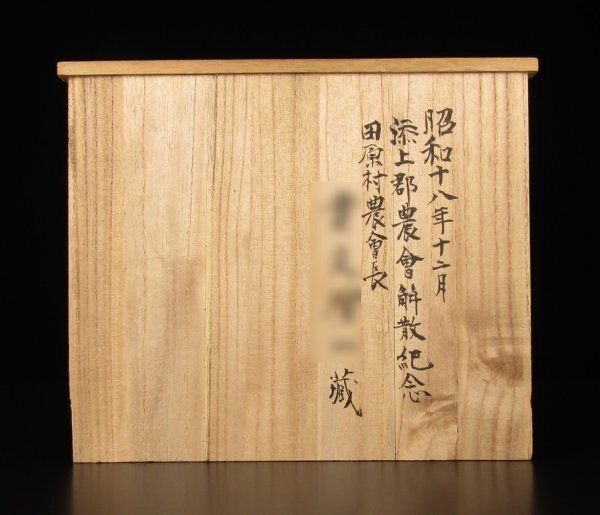 昭和十八年十二月
添上郡農會解散紀念
田原村農會長
藏